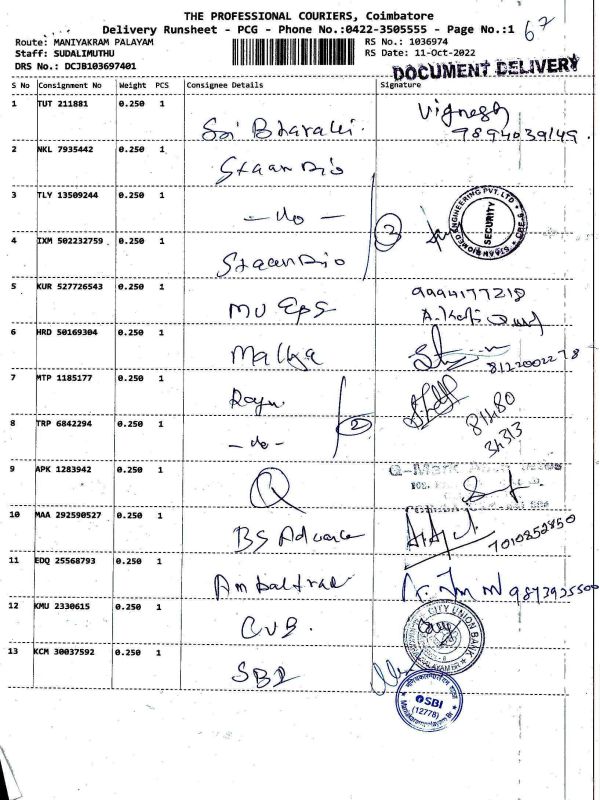 THE PROFESSIONAL COURIERS, Coimbatore
Delivery Runsheet - PCG - Phone No.:0422-3505555 - Page No.:1 67
Route: MANIYAKRAM PALAYAM RS No.: 1036974
Staff: SUDALIMUTHU RS Date: 11-Oct-2022
DRS No.: DCJB103697401
DOCUMENT DELIVERY
S No Consignment No Weight PCS Consignee Details Signature
1 TUT 211881 0.250 1 Sri Bharathi. Vignesh
9894039149.
2 NKL 7935442 0.250 1 Staan Bio
3 TLY 13509244 0.250 1 - do -
3
BIOMED ENGINEERING PVT. LTD
SECURITY
4 IXM 502232759 0.250 1 Staan Bio
5 KUR 527726543 0.250 1 9994177219
6 HRD 50169304 0.250 1 Mallga
8122002278
7 MTP 1185177 0.250 1 Raju
2
81480
34313
8 TRP 6842294 0.250 1 - do -
9 APK 1283942 0.250 1 Q
10 MAA 292590527 0.250 1 BS Advance
7010852850
11 EDQ 25568793 0.250 1 9873925500
12 KMU 2330615 0.250 1 CUB.
CITY UNION BANK
13 KCM 30037592 0.250 1 SBI
SBI
(12776)